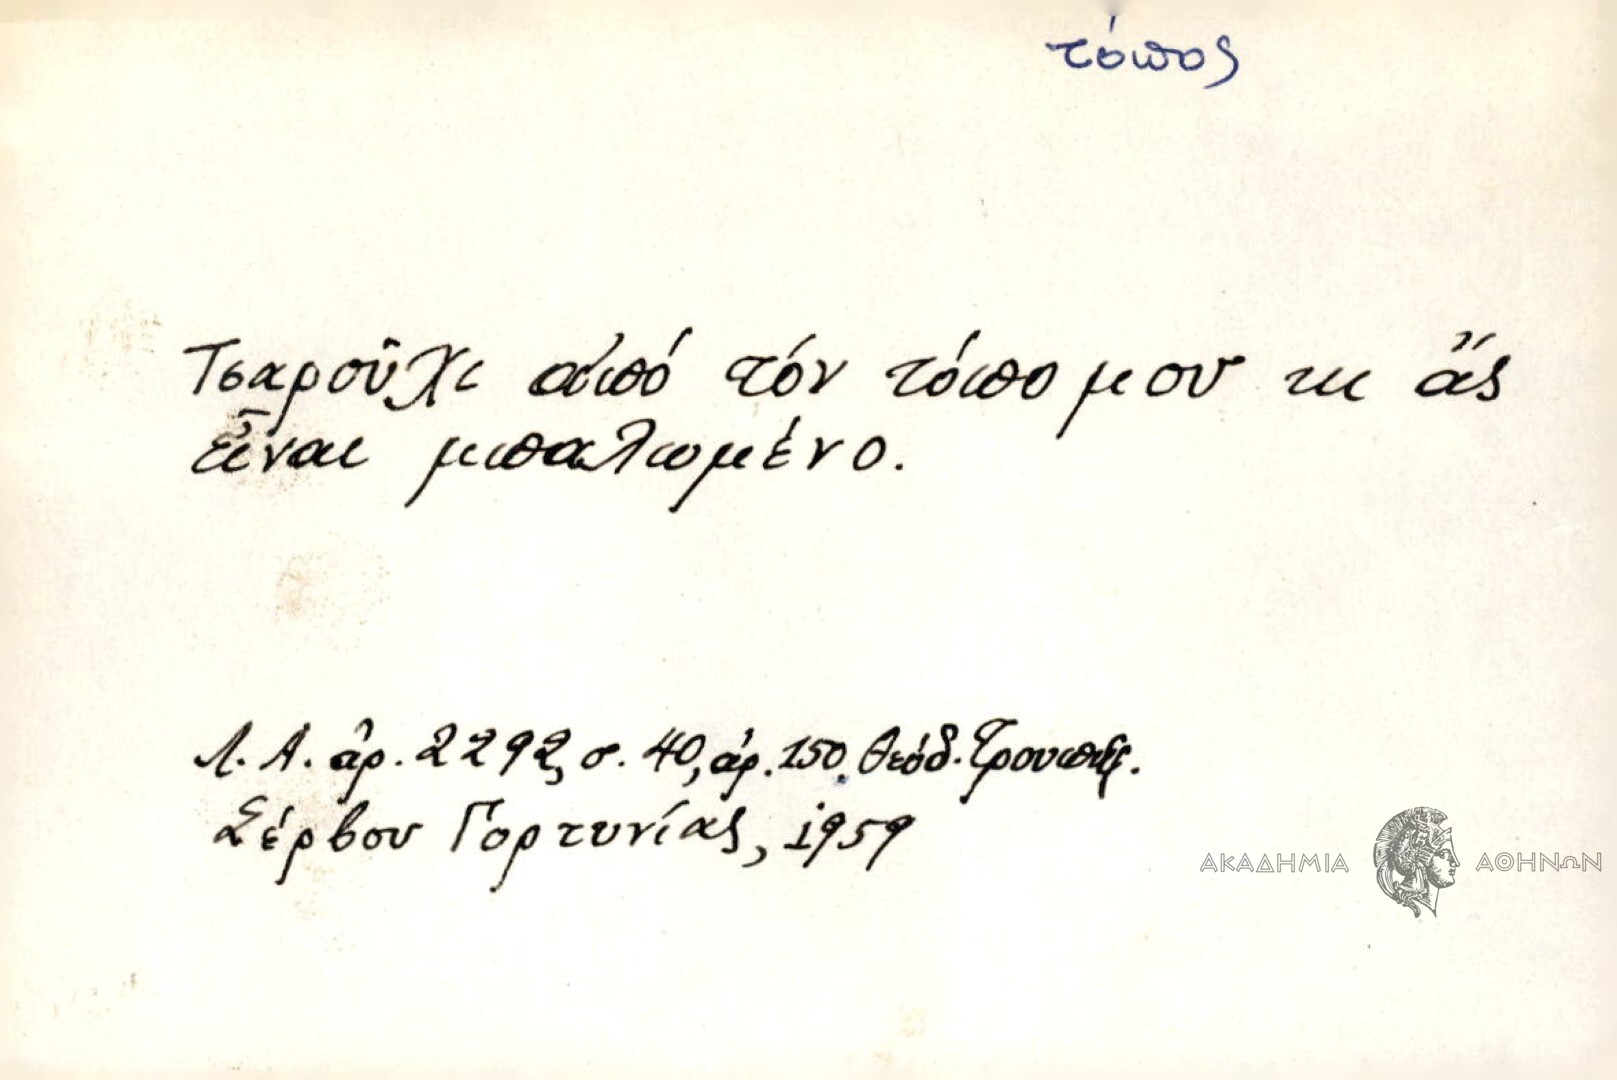 τόπος
Τσαροῦχι ἀπό τόν τόπο μου κι ἄς
εἶναι μπαλωμένο.
Λ. Α. ἀρ. 2292, σ. 40, ἀρ. 150, Θεόδ.
Σέρβου Γορτυνίας, 1959
ΑΚΑΔΗΜΙΑ ΑΘΗΝΩΝ